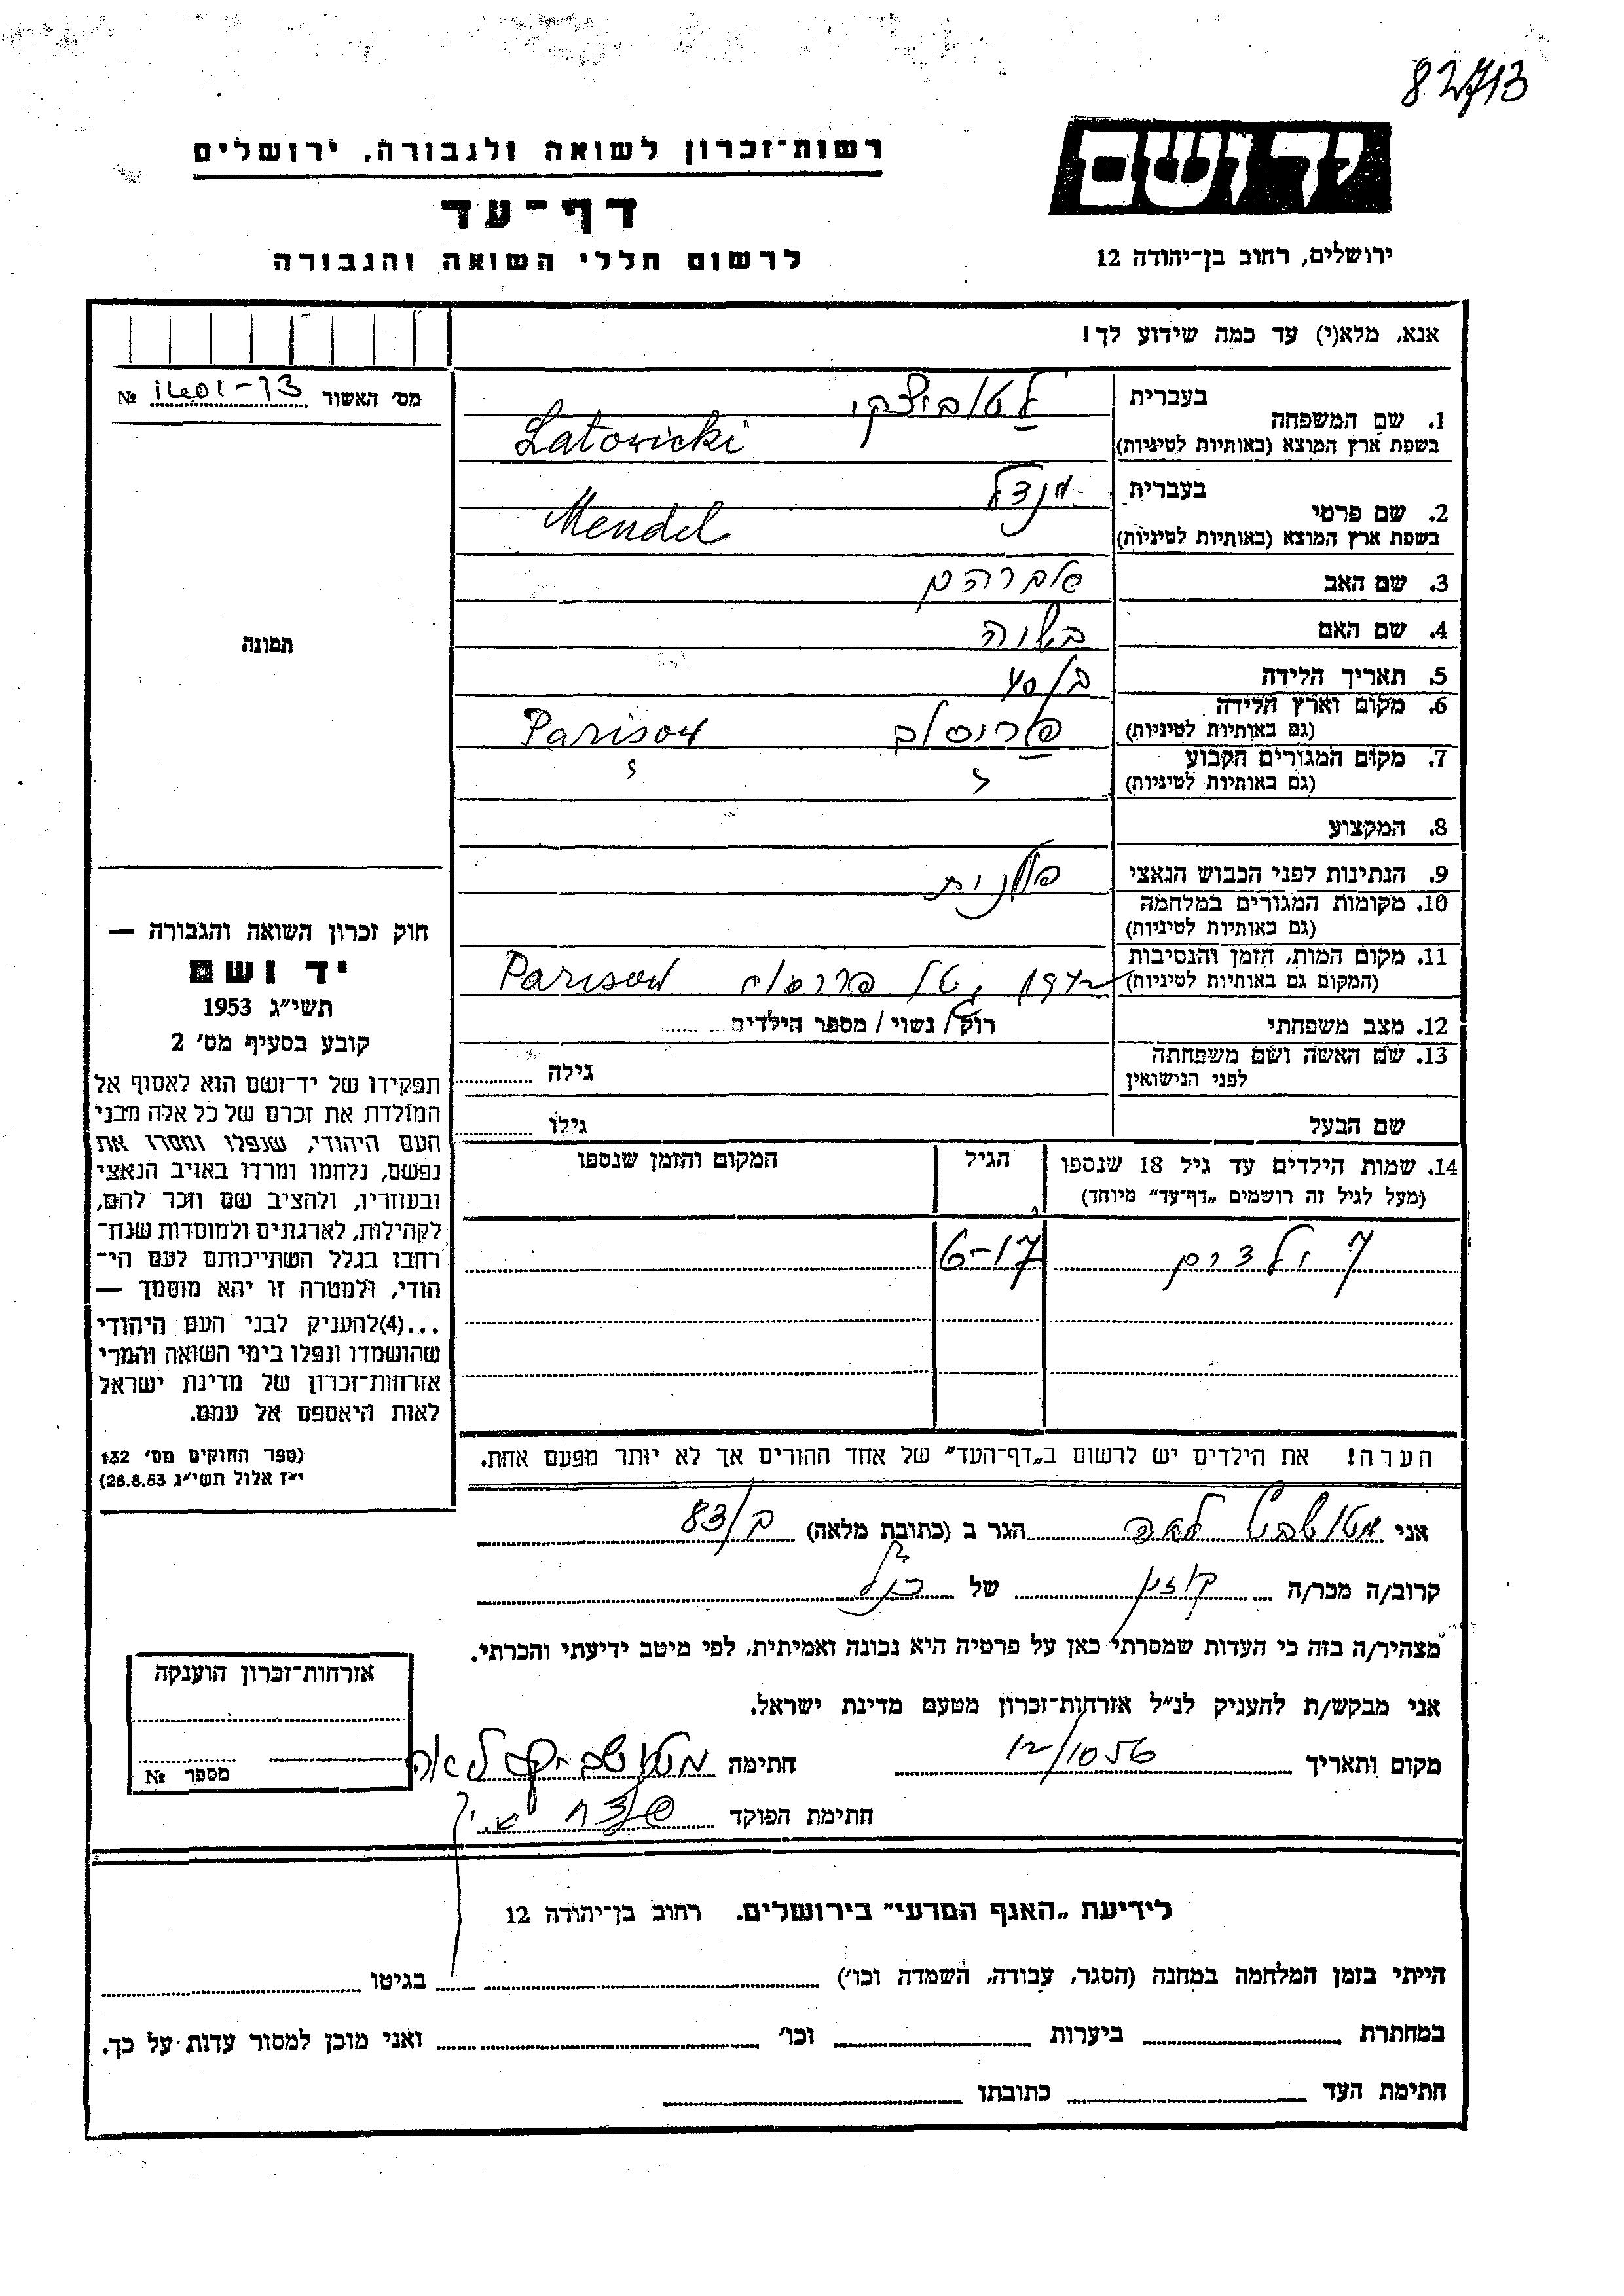 82713
רשות־זכרון לשואה ולגבורה, ירושלים
יד ושם
דף־עד
לרשום חללי השואה והגבורה
ירושלים, רחוב בן־יהודה 12
אנא, מלא(י) עד כמה שידוע לך!
מס' האשור №
1. שם המשפחה בעברית לטוביצקי
בשפת ארץ המוצא (באותיות לטיניות) Latowicki
2. שם פרטי בעברית מנדל
בשפת ארץ המוצא (באותיות לטיניות) Mendel
3. שם האב אברהם
4. שם האם
5. תאריך הלידה
6. מקום וארץ הלידה
(גם באותיות לטיניות) פריסוב Parisow
7. מקום המגורים הקבוע
(גם באותיות לטיניות)
8. המקצוע
9. הנתינות לפני הכבוש הנאצי פולנית
10. מקומות המגורים במלחמה
(גם באותיות לטיניות)
11. מקום המות, הזמן והנסיבות
(המקום גם באותיות לטיניות) 1942 Parisow
12. מצב משפחתי רוק/ נשוי/ מספר הילדים
13. שם האשה ושם משפחתה לפני הנישואין גילה
שם הבעל גילו
14. שמות הילדים עד גיל 18 שנספו
(מעל לגיל זה רושמים „דף־עד” מיוחד)
הגיל
המקום והזמן שנספו
7 ילדים 6-17
הערה! את הילדים יש לרשום ב„דף־העד” של אחד ההורים אך לא יותר מפעם אחת.
תמונה
חוק זכרון השואה והגבורה —
יד ושם
תשי״ג 1953
קובע בסעיף מס' 2
תפקידו של יד־ושם הוא לאסוף אל
המולדת את זכרם של כל אלה מבני
העם היהודי, שנפלו ומסרו את
נפשם, נלחמו ומרדו באויב הנאצי
ובעוזריו, ולהציב שם וזכר להם,
לקהילות, לארגונים ולמוסדות שנח־
רבו בגלל השתייכותם לעם הי־
הודי, ולמטרה זו יהא מוסמך —
...(4)להעניק לבני העם היהודי
שהושמדו ונפלו בימי השואה והמרי
אזרחות־זכרון של מדינת ישראל
לאות היאספם אל עמם.
(ספר החוקים מס' 132
י״ז אלול תשי״ג 28.8.53)
אני לאה הגר ב (כתובת מלאה) 83/
קרוב/ה מכר/ה קוזין של הנ״ל
מצהיר/ה בזה כי העדות שמסרתי כאן על פרטיה היא נכונה ואמיתית, לפי מיטב ידיעתי והכרתי.
אני מבקש/ת להעניק לנ״ל אזרחות־זכרון מטעם מדינת ישראל.
מקום ותאריך 12/10 56 חתימה לאה
חתימת הפוקד
אזרחות־זכרון הוענקה
מספר №
לידיעת „האגף המדעי” בירושלים. רחוב בן־יהודה 12
הייתי בזמן המלחמה במחנה (הסגר, עבודה, השמדה וכו') בגיטו
במחתרת ביערות וכו' ואני מוכן למסור עדות על כך.
חתימת העד כתובתו